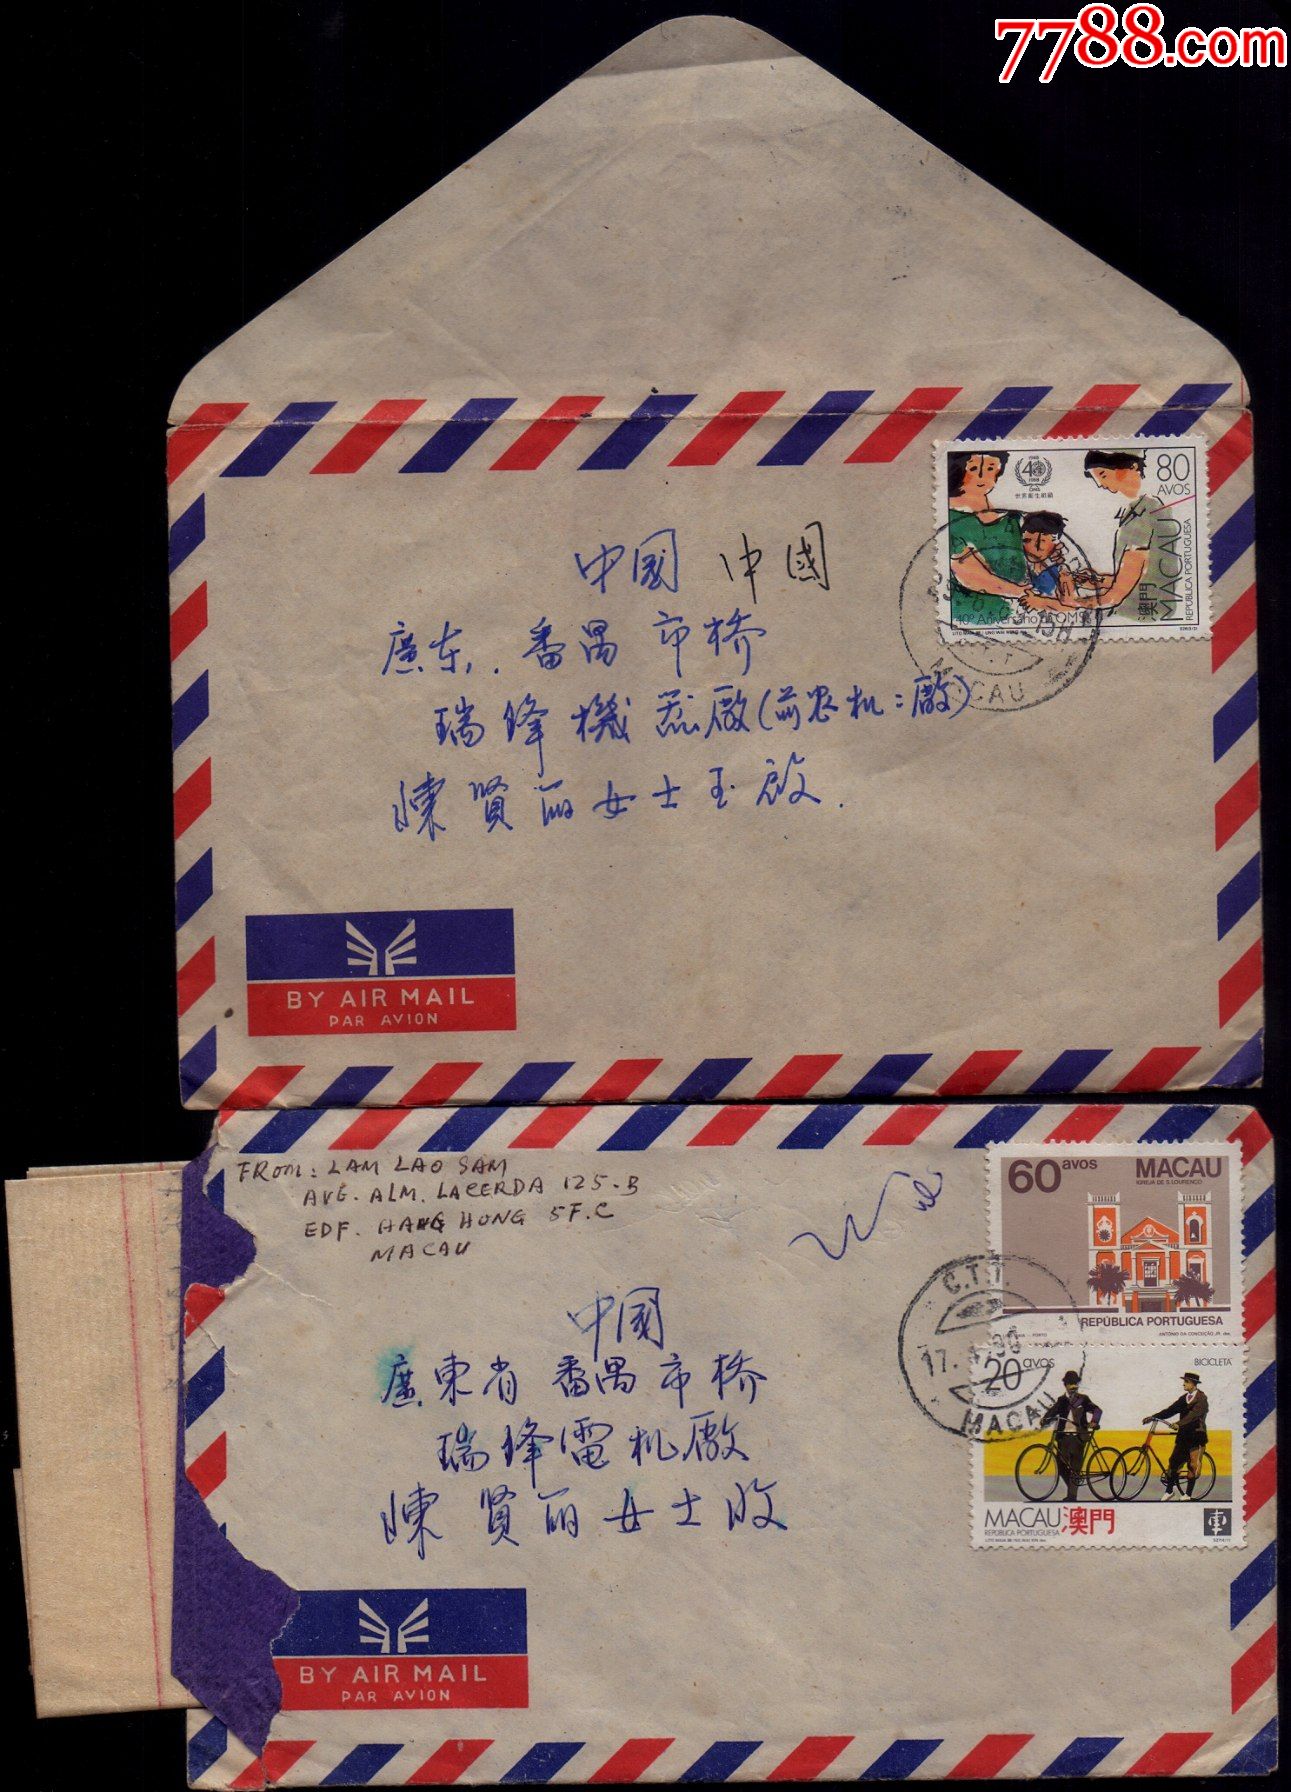 7788.com
1948
40
1988
OMS
世界衛生組織
80
AVOS
澳門 MACAU
REPÚBLICA PORTUGUESA
40º Aniversário da OMS
MACAU
中国 中國
廣东, 番禺市桥
瑞鋒機器厰(前农机二廠)
陳賢丽女士玉啟.
BY AIR MAIL
PAR AVION
FROM: LAM LAO SAM
AVE. ALM. LACERDA 125-B
EDF. HANG HONG 5F.C
MACAU
60 avos MACAU
IGREJA DE S. LOURENÇO
REPÚBLICA PORTUGUESA
ANTÓNIO DA CONCEIÇÃO JR. des.
C.T.T.
MACAU
20 avos
BICICLETA
MACAU 澳門
REPÚBLICA PORTUGUESA
中國
廣東省番禺市桥
瑞鋒電机厰
陳賢丽女士收
BY AIR MAIL
PAR AVION